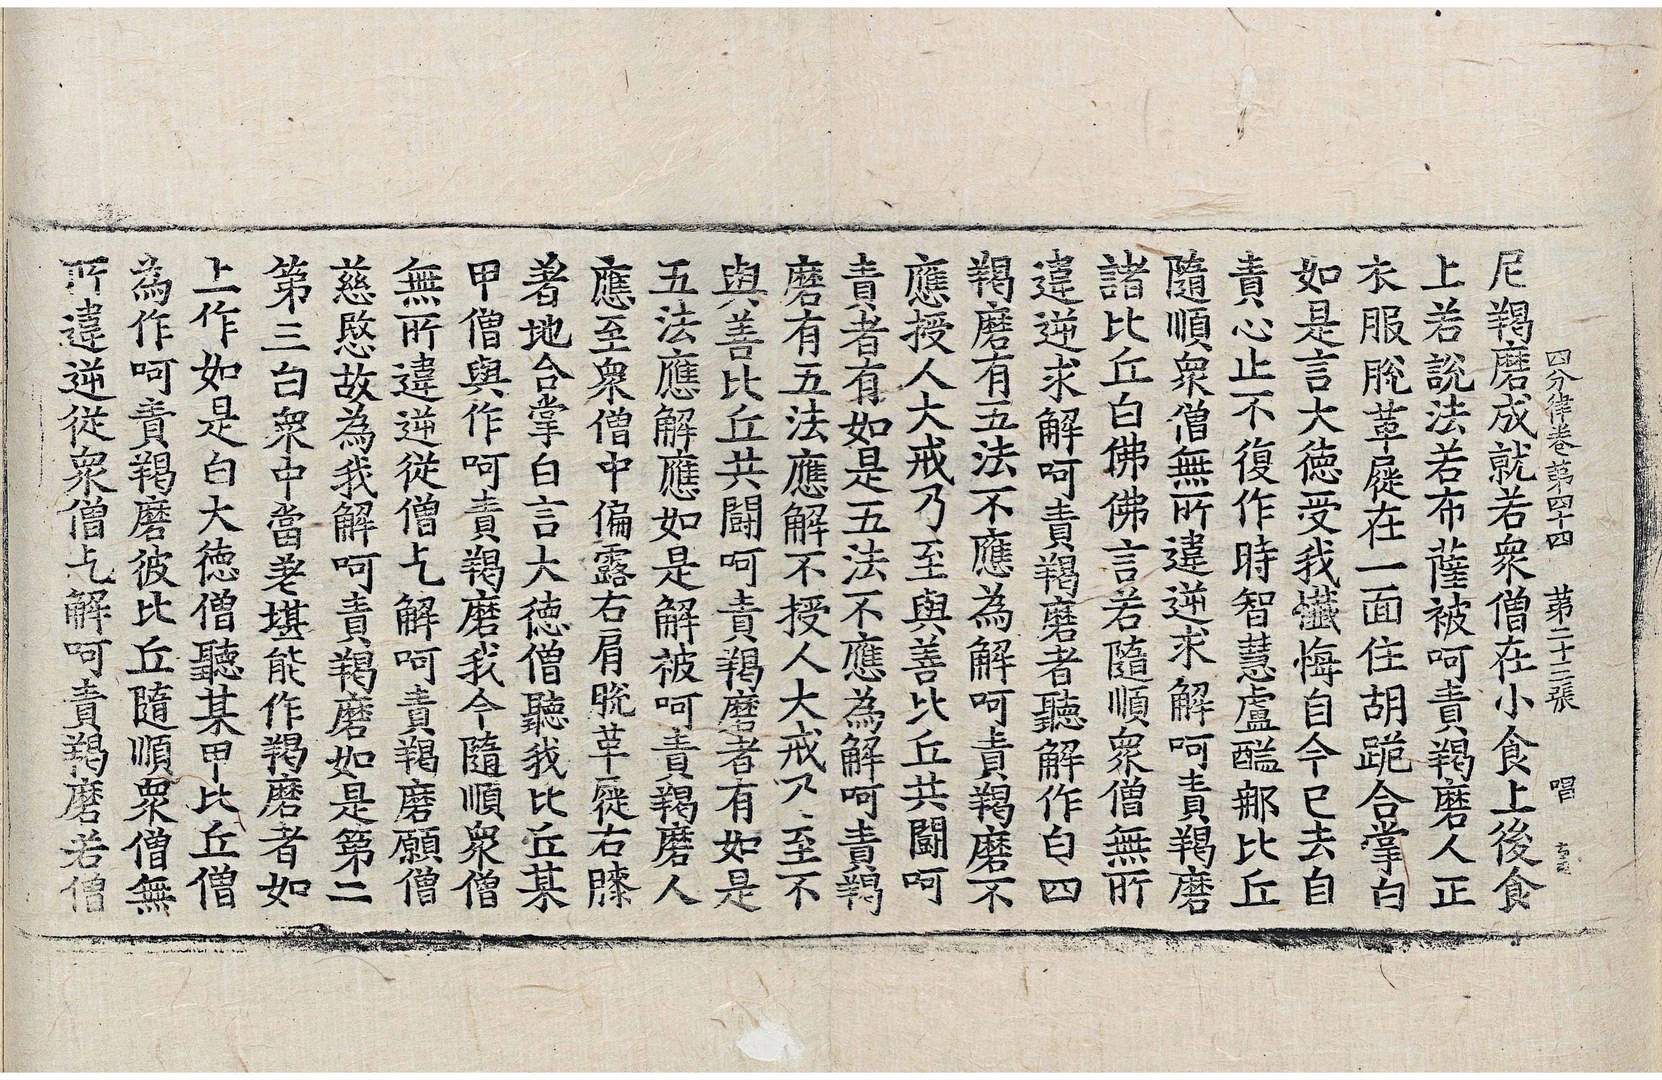 四分律卷第四十四　第二十三張　唱
尼羯磨成就若衆僧在小食上後食
上若說法若布薩被呵責羯磨人正
衣服脫革屣在一面住胡跪合掌白
如是言大德受我懺悔自今已去自
責心止不復作時智慧盧醯那比丘
隨順衆僧無所違逆求解呵責羯磨
諸比丘白佛佛言若隨順衆僧無所
違逆求解呵責羯磨者聽解作白四
羯磨有五法不應為解呵責羯磨不
應授人大戒乃至與善比丘共鬪呵
責者有如是五法不應為解呵責羯
磨有五法應解不授人大戒乃至不
與善比丘共鬪呵責羯磨者有如是
五法應解應如是解被呵責羯磨人
應至衆僧中偏露右肩脫革屣右膝
著地合掌白言大德僧聽我比丘某
甲僧與作呵責羯磨我今隨順衆僧
無所違逆從僧乞解呵責羯磨願僧
慈愍故為我解呵責羯磨如是第二
第三白衆中當差堪能作羯磨者如
上作如是白大德僧聽某甲比丘僧
為作呵責羯磨彼比丘隨順衆僧無
所違逆從衆僧乞解呵責羯磨若僧